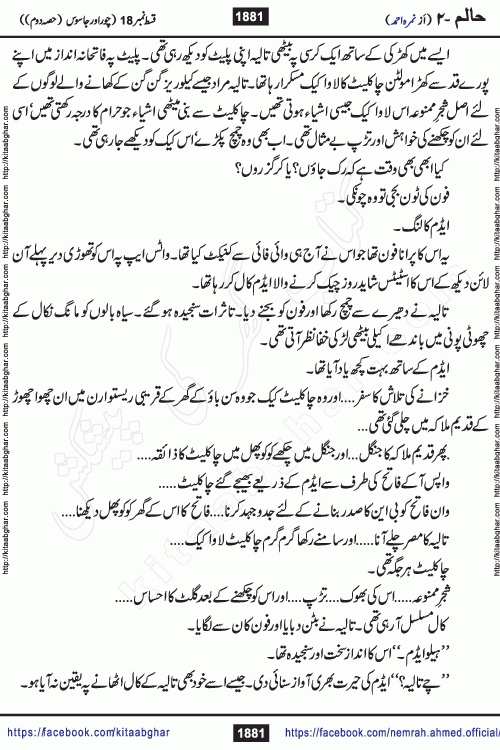 حالم ۔۲ (از نمرہ احمد) 1881 قسط نمبر 18 (چور اور جاسوس (حصہ دوم))
ایسے میں کھڑکی کے ساتھ ایک کرسی پہ بیٹھی تالیہ اپنی پلیٹ کو دیکھ رہی تھی۔ پلیٹ پہ فاتحانہ انداز میں اپنے
پورے قد سے کھڑا مولٹن چاکلیٹ کا لاوا کیک مسکرا رہا تھا۔ تالیہ مراد جیسے کیلوریز گن گن کے کھانے والے لوگوں کے
لئے اصل شجرِ ممنوعہ اس لاوا کیک جیسی اشیاء ہوتی تھیں۔ چاکلیٹ سے بنی میٹھی اشیاء جو حرام کا درجہ رکھتی تھیں‘ اسی
لئے ان کو چکھنے کی خواہش اور تڑپ بے مثال تھی۔ اب بھی وہ چمچ پکڑے‘ اس کیک کو دیکھے جا رہی تھی۔
کیا ابھی بھی وقت ہے کہ رک جاؤں؟ یا کر گزروں؟
فون کی ٹون بجی تو وہ چونکی۔
ایڈم کالنگ۔
یہ اس کا پرانا فون تھا جو اس نے آج ہی وائی فائی سے کنیکٹ کیا تھا۔ واٹس ایپ پہ اس کو تھوڑی دیر پہلے آن
لائن دیکھ کے اس کا اسٹیٹس شاید روز چیک کرنے والا ایڈم کال کر رہا تھا۔
تالیہ نے دھیرے سے چمچ رکھا اور فون کو بجنے دیا۔ تاثرات سنجیدہ ہو گئے۔ سیاہ بالوں کو مانگ نکال کے
چھوٹی پونی میں باندھے اکیلی بیٹھی لڑکی خفا نظر آتی تھی۔
ایڈم کے ساتھ بہت کچھ یاد آیا تھا۔
خزانے کی تلاش کا سفر.... اور وہ چاکلیٹ کیک جو وہ سن باؤ کے گھر کے قریبی ریستوران میں ان چھوا چھوڑ
کے قدیم ملاکہ میں چلی گئی تھی...
پھر قدیم ملاکہ کا جنگل... اور جنگل میں چکھے کوکو پھل میں چاکلیٹ کا ذائقہ....
واپس آ کے فاتح کی طرف سے ایڈم کے ذریعے بھیجے گئے چاکلیٹ.....
وان فاتح کو بی این کا صدر بنانے کے لئے جدوجہد کرنا.... فاتح کا اس کے گھر کوکو پھل دیکھنا....
تالیہ کا مصر چلے آنا..... اور سامنے رکھا گرم گرم چاکلیٹ لاوا کیک....
چاکلیٹ ہر جگہ تھی۔
شجرِ ممنوعہ..... اس کی بھوک.... تڑپ.... اور اس کو چکھنے کے بعد گلٹ کا احساس.....
کال مسلسل آ رہی تھی۔ تالیہ نے بٹن دبایا اور فون کان سے لگایا۔
”ہیلو ایڈم۔“ اس کا انداز سخت اور سنجیدہ تھا۔
”چے تالیہ؟“ ایڈم کی حیرت بھری آواز سنائی دی۔ جیسے اسے خود بھی تالیہ کے کال اٹھانے پہ یقین نہ آیا ہو۔
https://facebook.com/kitaabghar 1881 https://facebook.com/nemrah.ahmed.official/
http://kitaabghar.com http://kitaabghar.com http://kitaabghar.com http://kitaabghar.com
http://kitaabghar.com http://kitaabghar.com http://kitaabghar.com http://kitaabghar.com